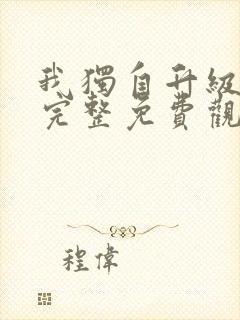 我獨自升級
完整免費觀
程偉